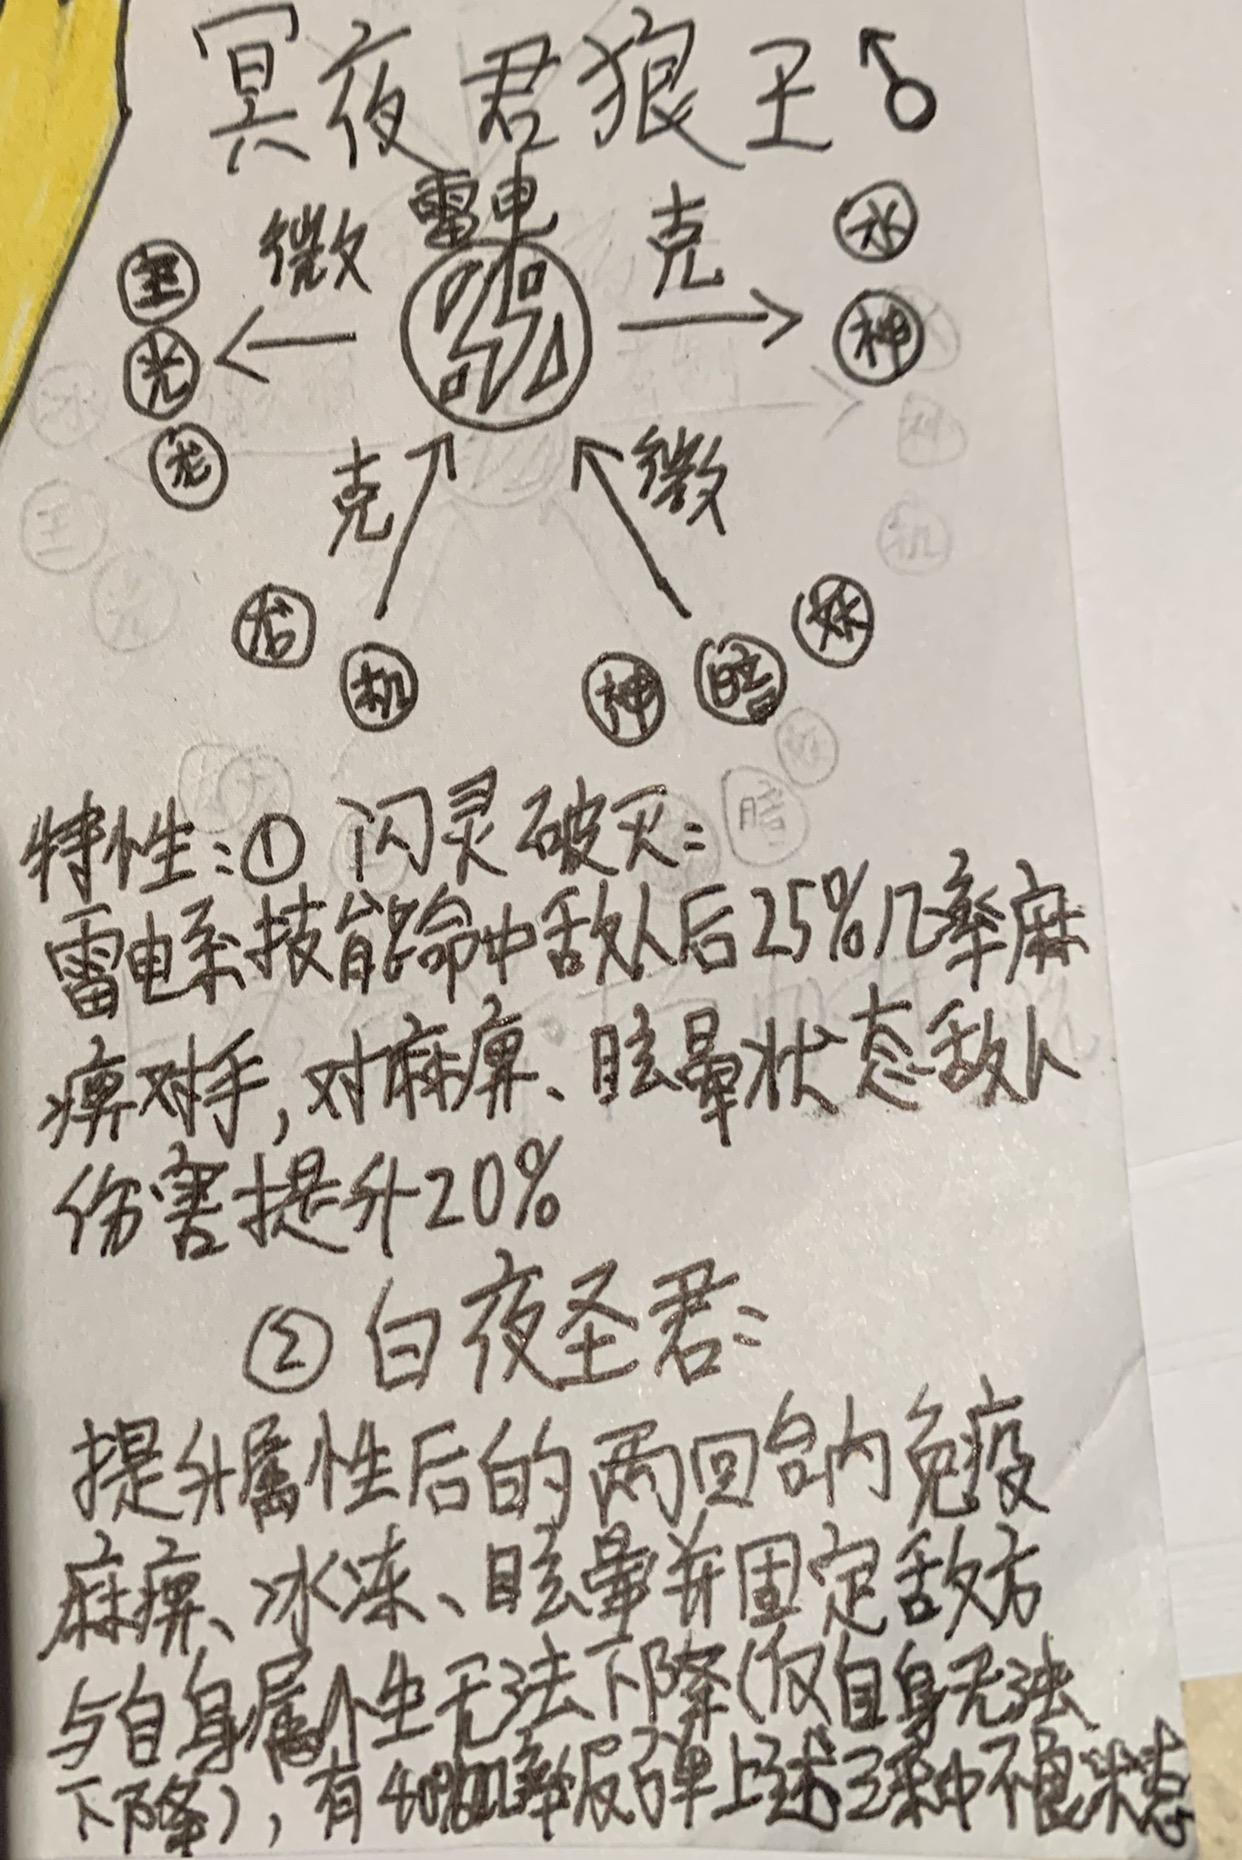 冥夜君狼王♂
雷电
微
克
水
圣
光
神
龙
克
微
机
神
暗
特性:① 闪灵破灭:
雷电系技能命中敌人后25%几率麻
痹对手,对麻痹、眩晕状态敌人
伤害提升20%
② 白夜圣君:
提升属性后的两回合内免疫
麻痹、冰冻、眩晕并固定敌方
与自身属性无法下降(仅自身无法
下降),有40%几率反弹上述三种不良状态